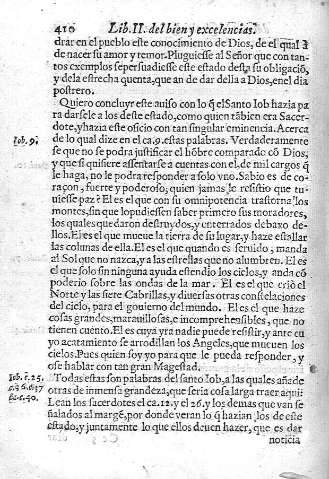 410 Lib. II. del bien y excelencias.
drar en el pueblo este conocimiento de Dios, de el qual à
de nacer su amor y temor. Pluguiesse al Señor que con tan-
tos exemplos se persuadiesse este estado desta su obligaciō,
y dela estrecha quenta, que an de dar della a Dios, en el dia
postrero.
Quiero concluyr este auiso con lo q̄ el Santo Iob hazia pa
ra darsele a los deste estado, como quien tābien era Sacer-
dote, y hazia este oficio con tan singular eminencia. Acerca
Iob. 9. de lo qual dize en el ca. 9. estas palabras. Verdaderamente
se que no se podra justificar el hōbre comparado cō Dios,
y que si quisiere assentarse a cuentas con el, de mil cargos q̄
le haga, no le podra responder a solo vno. Sabio es de co-
raçon, fuerte y poderoso, quien jamas le resistio que tu-
uiesse paz? El es el que con su omnipotencia trastorna los
montes, sin que lo pudiessen saber primero sus moradores,
los quales quedaron destruydos, y enterrados debaxo de-
llos. El es el que mueue la tierra de su lugar, y haze estallar
las colunas de ella. El es el que quando es seruido, manda
al Sol que no nazca, y a las estrellas que no alumbren. El es
el que solo sin ninguna ayuda estendio los cielos, y anda cō
poderio sobre las ondas de la mar. El es el que criò el
Norte y las siete Cabrillas, y diuersas otras constelaciones
del cielo, para el gouierno del mundo. El es el que haze
cosas grandes, marauillosas, e incomprehensibles, que no
tienen cuento. El es cuya yra nadie puede resistir, y ante cu
yo acatamiento se arrodillan los Angeles, que mueuen los
cielos. Pues quien soy yo para que le pueda responder, y
ose hablar con tan gran Magestad.
Iob. c. 25. Todas estas son palabras del santo Iob, a las quales añade
otras de inmensa grandeza, que seria cosa larga traer aqui:
Lean los sacerdotes el ca. 12. y el 26. y los demas que van se
ñalados al margē, por donde veran lo q̄ hazian los de este
estado, y juntamente lo que ellos deuen hazer, que es dar
noticia